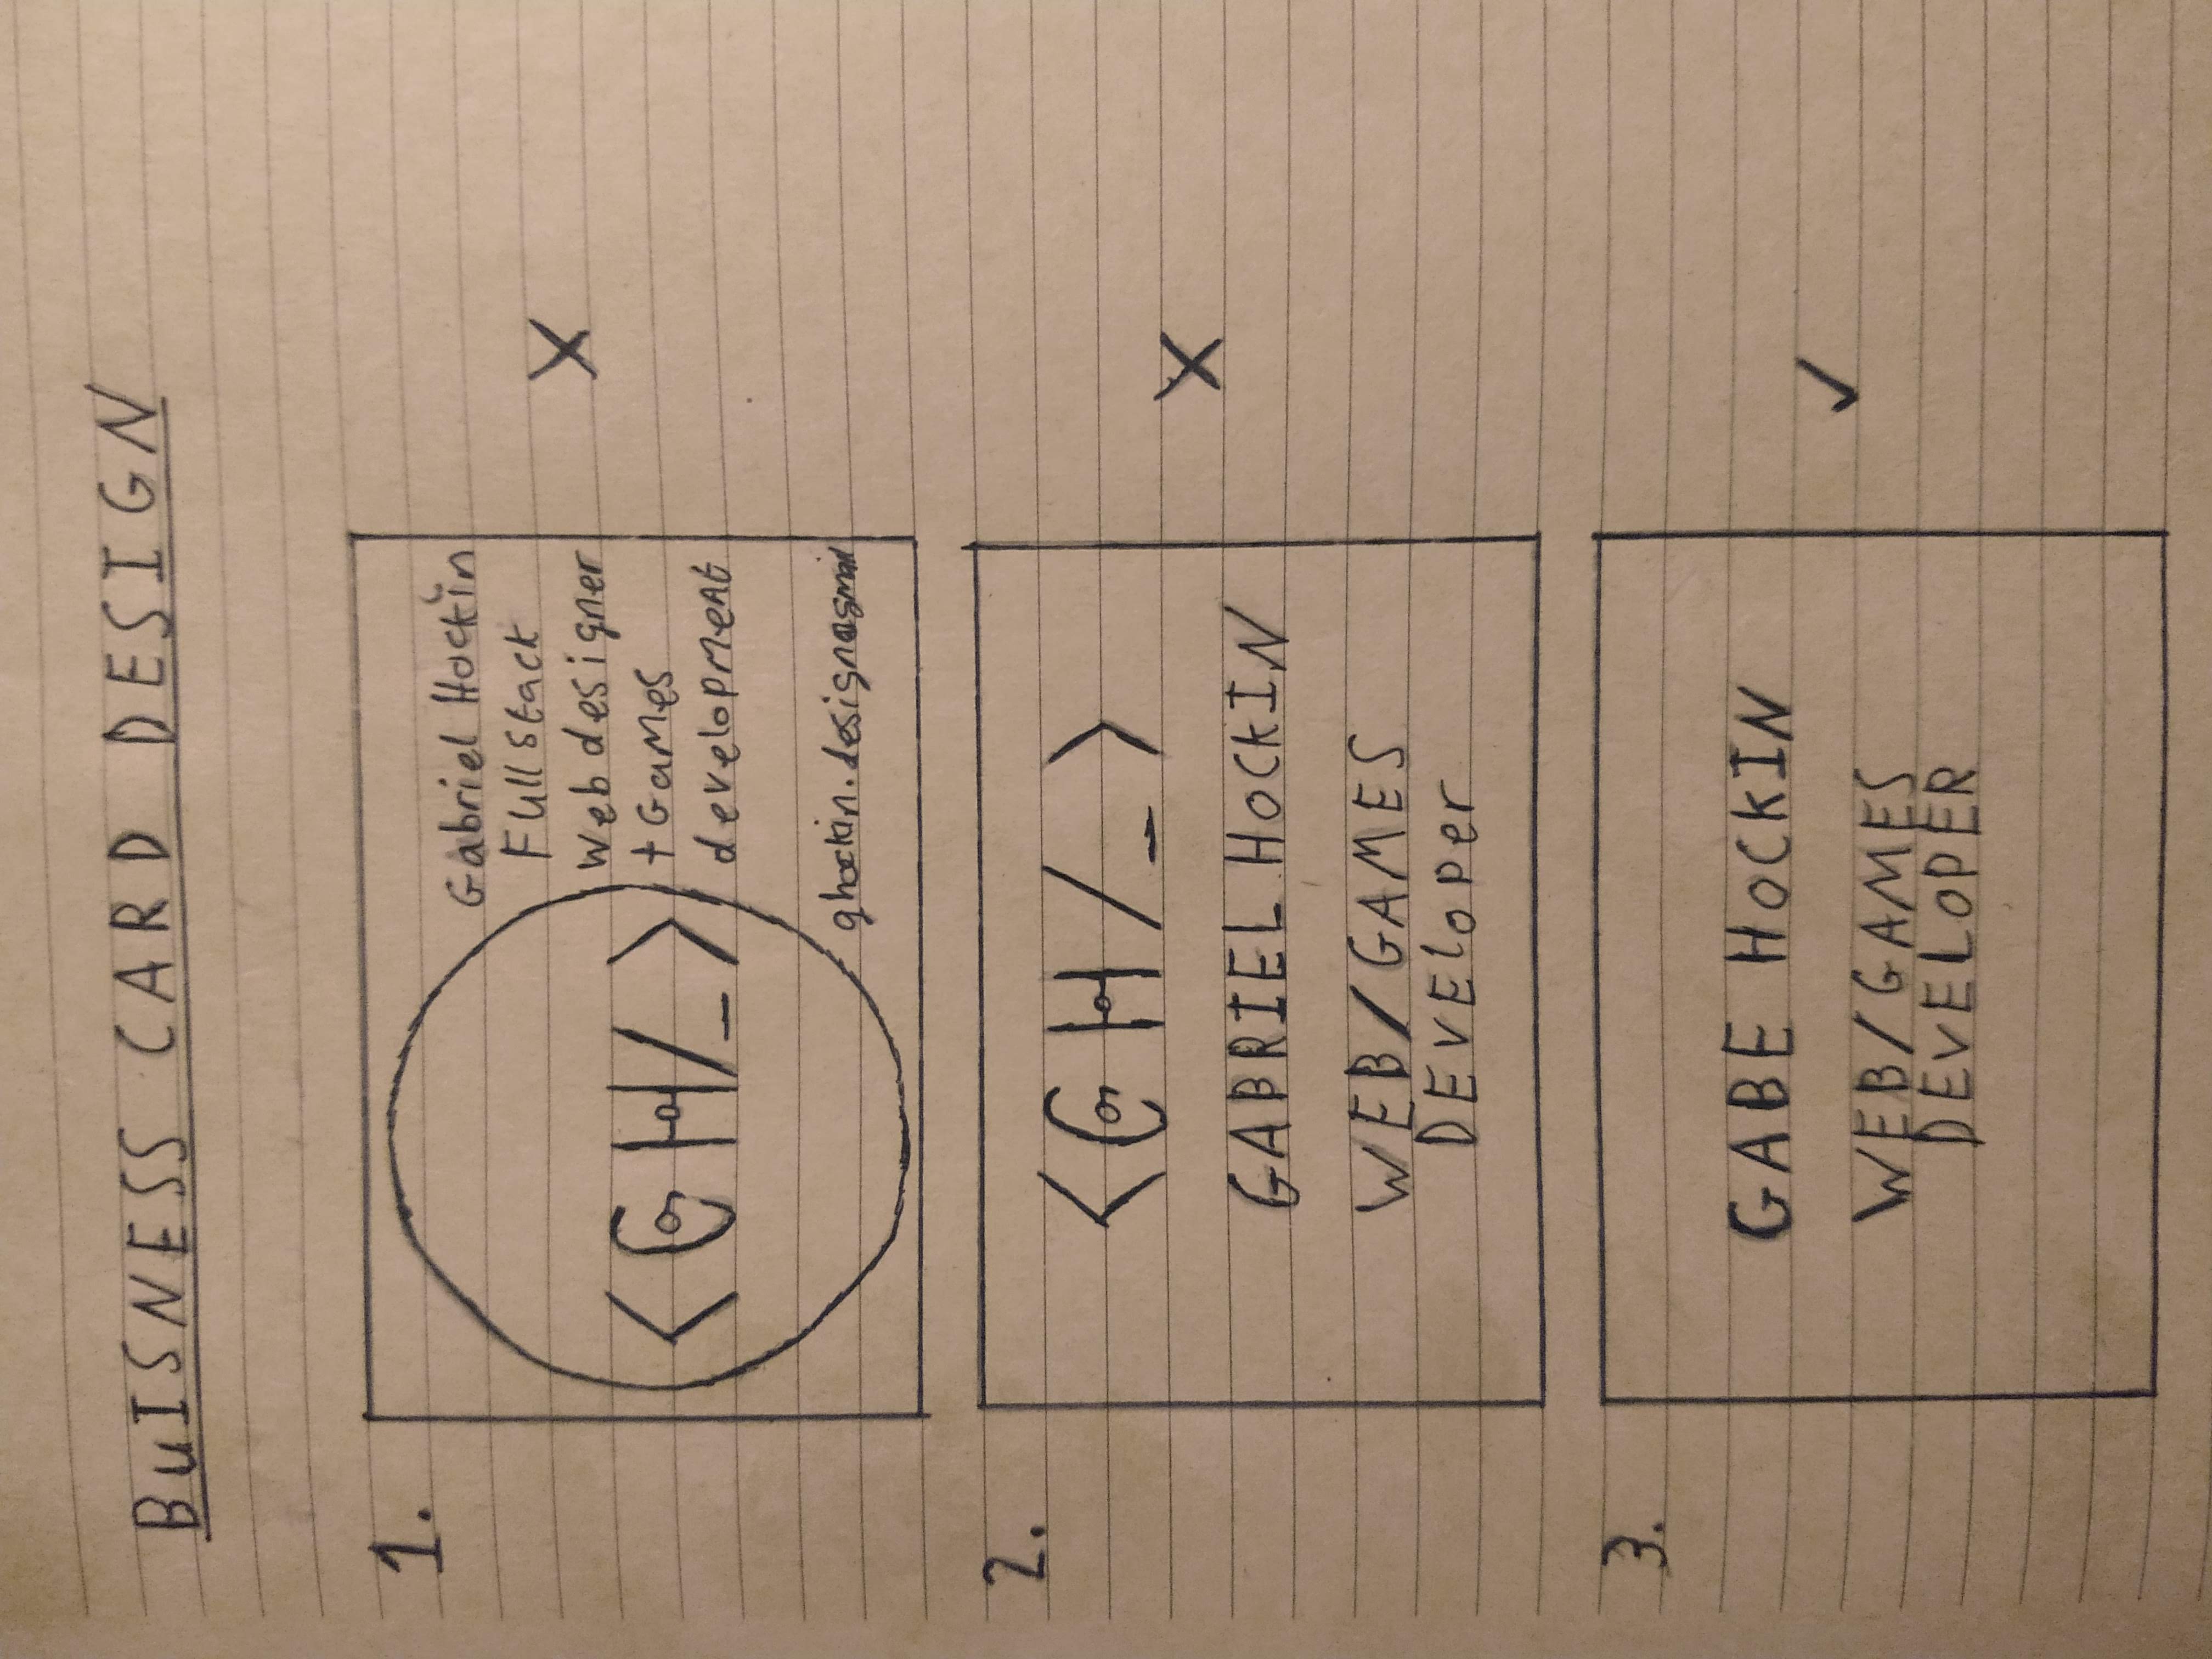 BuISNESS CARD DESIGN
1.
Gabriel Hockin
Full Stack
Web designer
+ Games
development
<GH/_>
ghockin.design@gmail
X
2.
<GH/_>
GABRIEL HOCKIN
X
WEB/GAMES
DEVEloper
3.
GABE HOCKIN
WEB/GAMES
DEVELOPER
✓